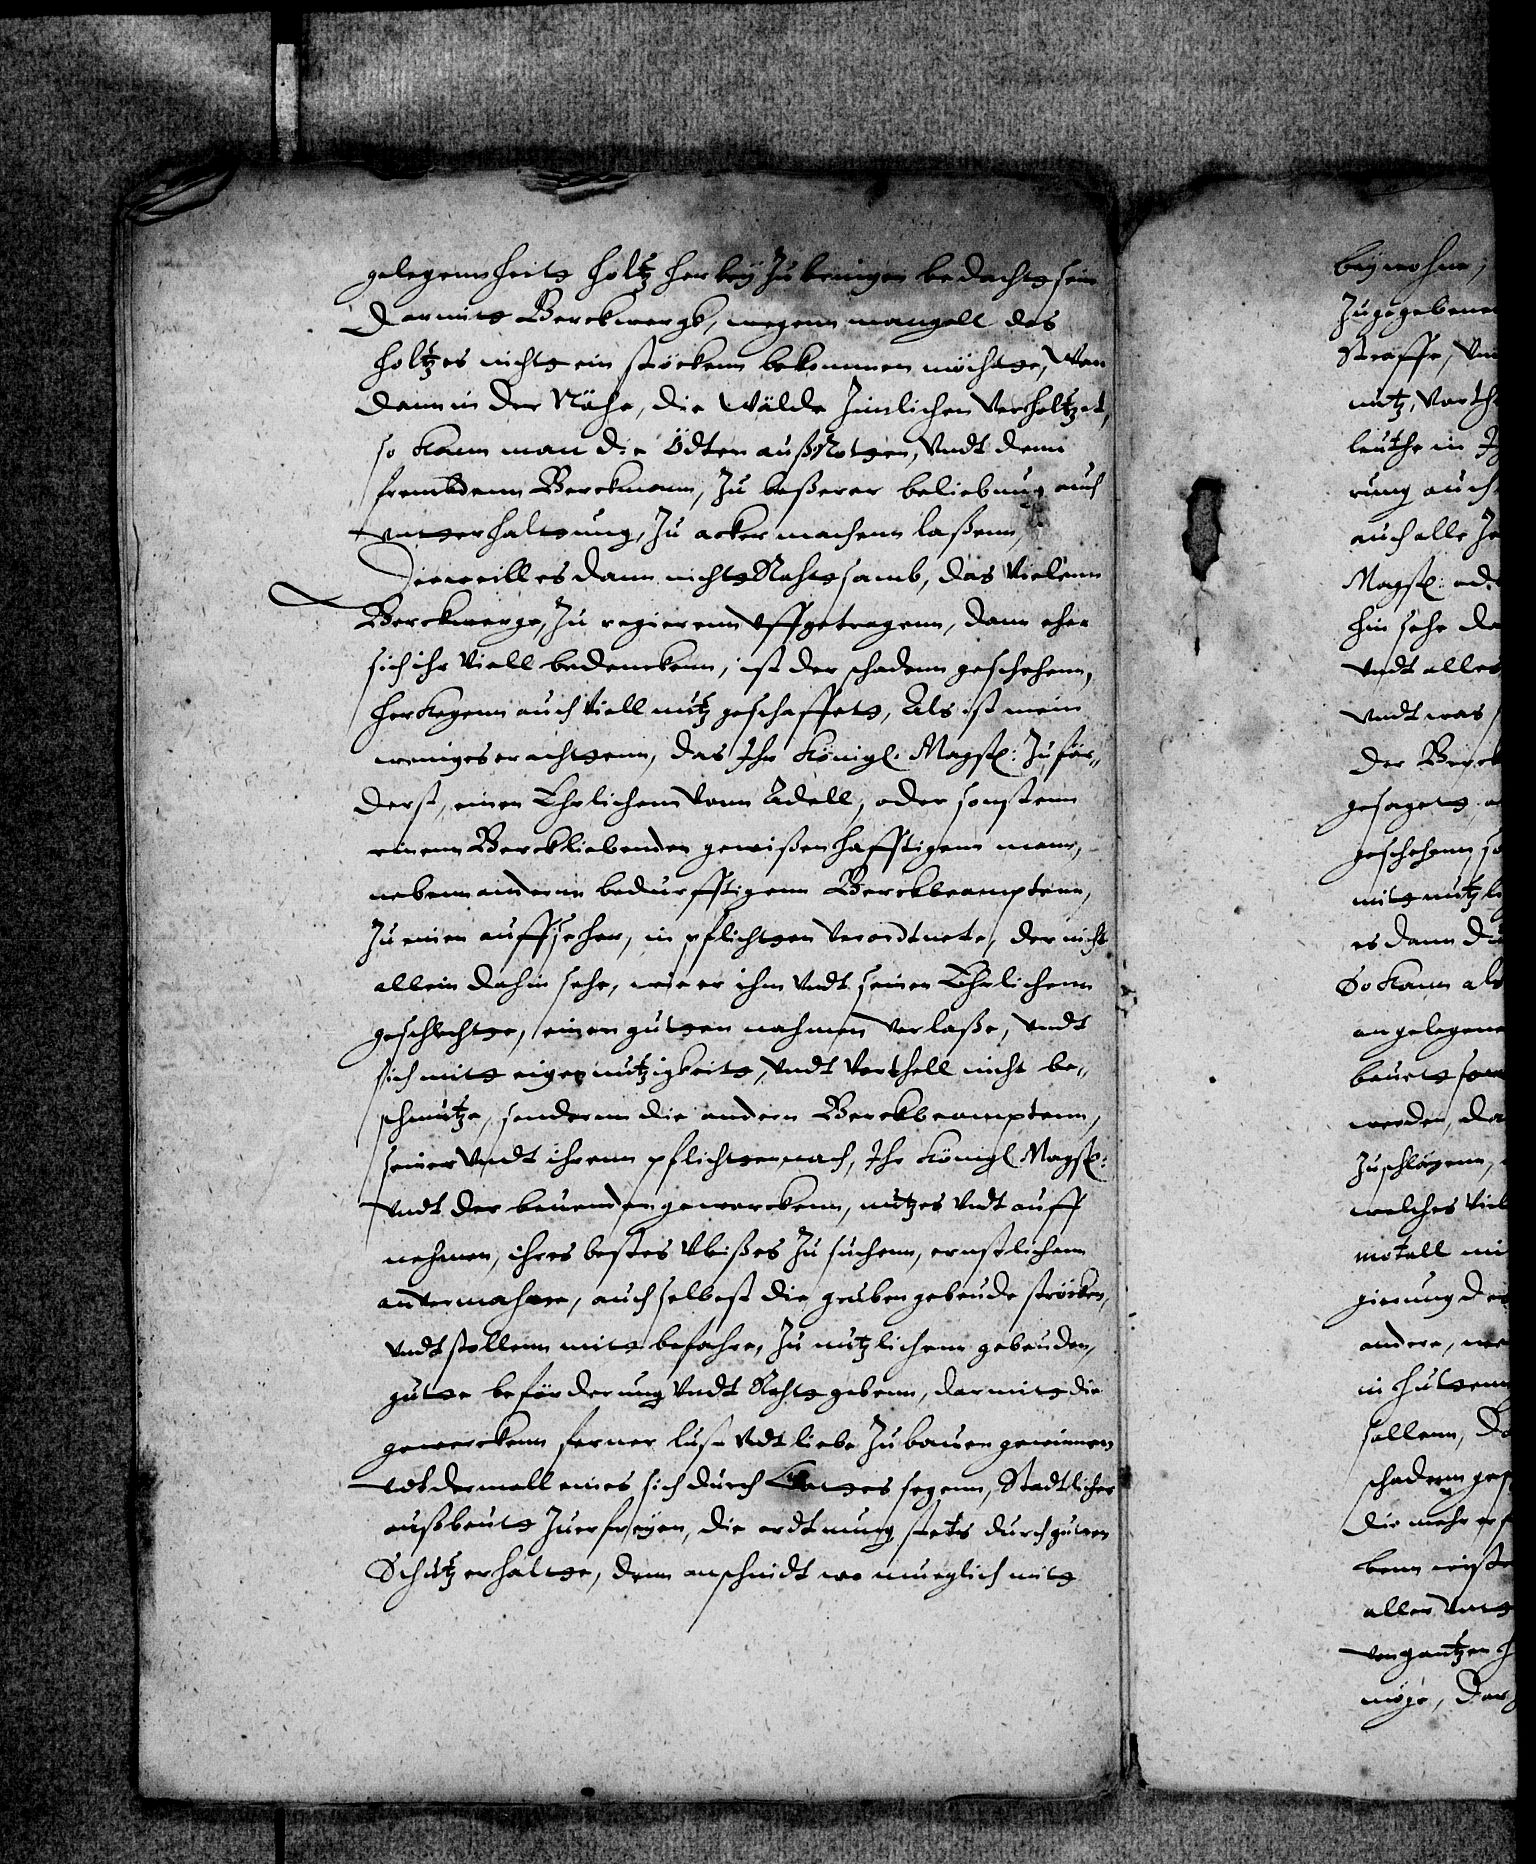 gelegennheitt holtz herbeÿ zu bringen bedacht sein
darmitt Berckwergk, wegenn mangell des
holtzes nicht ein störckenn bekommen möchte, Wan
dann in der Nähe, die Wälde zimlichen verholtzet,
so kann man die Ödter außRotten, Undt denn
frembdenn Berckmann, zu beßerer beliebnug auch
unterhaltung, zu acker machenn laßenn,
Dieweill es dann nicht Rahtsamb, das Vielenn
Berckwerge, zu regierenn uffgetragenn, dann eher
sich ihr Viell bedenckenn, ist der schadenn geschehenn,
herkegenn auch Viell nutz geschaffett, Als ist mein
weniges erachtenn, das Ihr Königl: Magst: zu för„
derst, einen Ehrlichenn vonn Adell, oder sonstenn
einenn Berckliebenden gewißenhafftigenn mann,
nebenn anderrn bedurfftigenn Berckbeamptenn,
zu einen auffseher, in pflichten verordtnete, der nicht
allein dahin sehe, wie er ihm undt seinen Ehrlichenn
geschlechte, einen gutten nahmen verlaße, undt
sich mitt eigennutzigkeitt, undt Vorthell nicht be„
schmutze, sonderrn die andern Berckbeamptenn,
seiner undt ihrenn pflichten nach, Ihr Königl: Magst:
undt der bauenden gewerckenn, nutzes undt auff
nehmen, ihres bestes Vleißes zu suchenn, ernstlichenn
anvermahne, auch selbest die grubengebeude ströcken,
undt stollenn mitt befahre, zu nutzlichenn gebeuden,
gutte beförderung undt Raht gebenn, darmitt die
gewerckenn ferner lust Undt liebe zu bauen gewinnen
undt dermall eines sich durch Gottes segenn, Stadtlicher
außbeutt zu erfreÿen, die ordtnung stets durch guten
Schutz erhalte, denn anschnidt wo mueglich mitt
beÿwohne,
zu gegebene
Straffe, Und
nutz, vorth
leuthe in
rung auch
auch alle
Magst: od
hin sehe da
undt alles
undt was
der Berck
gesagett
geschehenn, so
mitt nutzli
es dann die
So kann als
angelegene
bauett
werden, da
zuschlagenn,
welches Viel
metall mi
gierung des
andere, we
in huttenn
sollenn, Da
schadenn ges
die mehr
benn wiste
aller
von gantzen h
möge, Der